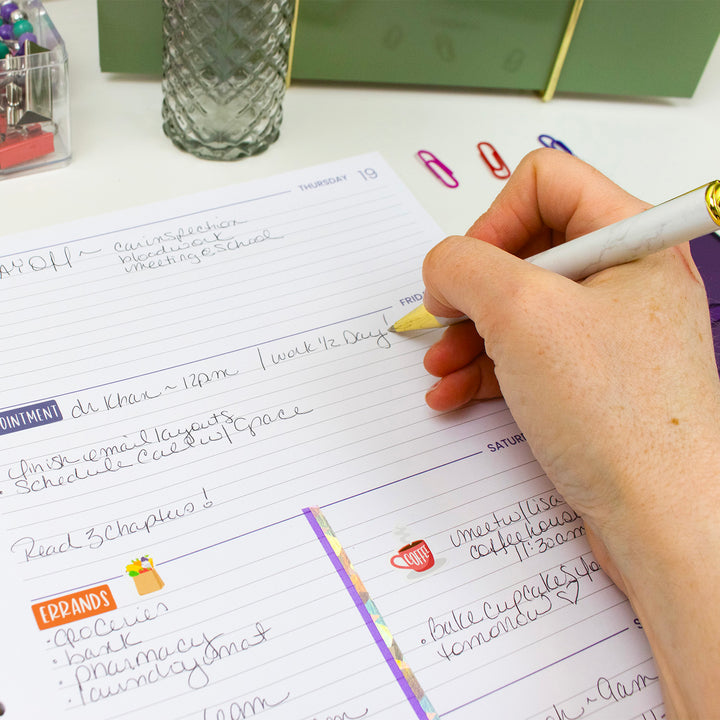 THURSDAY 19
AYOff ~ car inspection
bloodwork
meeting @ School
FRID
OINTMENT dr Khan ~ 12pm | work 1/2 Day!
finish email layouts
Schedule Call w/ Grace
SATUR
Read 3 Chapters!
meet w/ Lisa
coffeehouse
11:30am
COFFEE
ERRANDS
• groceries
• bank
• pharmacy
• laundry mat
• bake cupcakes for
tomorrow ♡
S
am
~ 9am